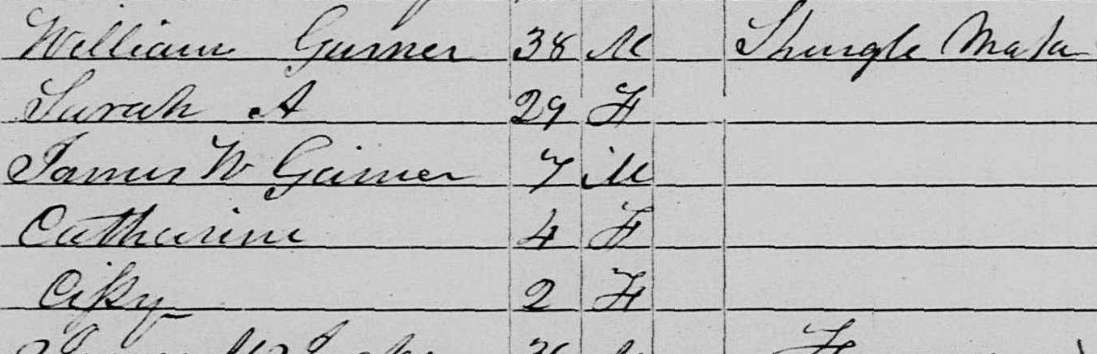 William Garner 38 M Shingle Maker
Sarah A 29 F
James W Garner 7 M
Catharine 4 F
2 F